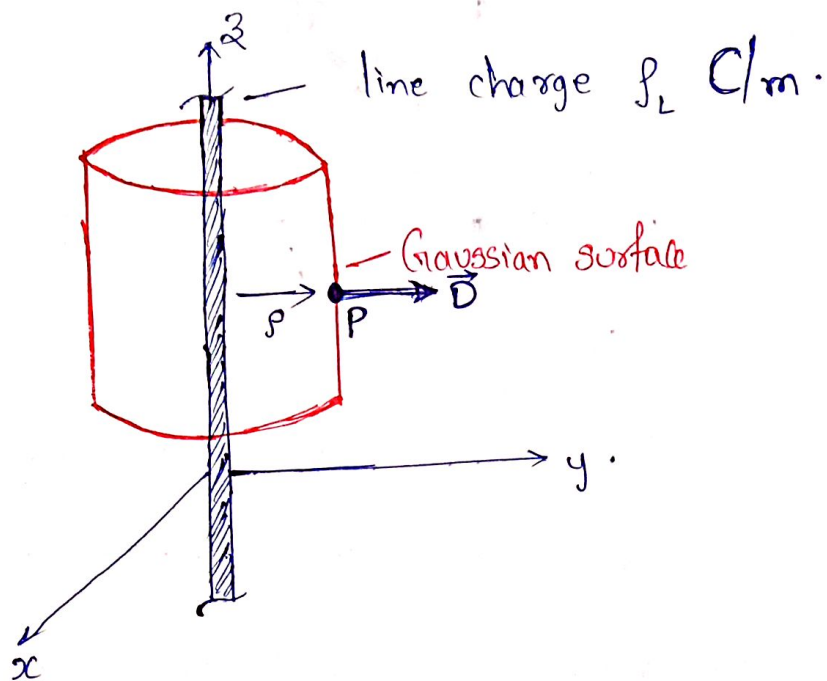 z
line charge ρL C/m.
Gaussian surface
ρ P D⃗
y.
x